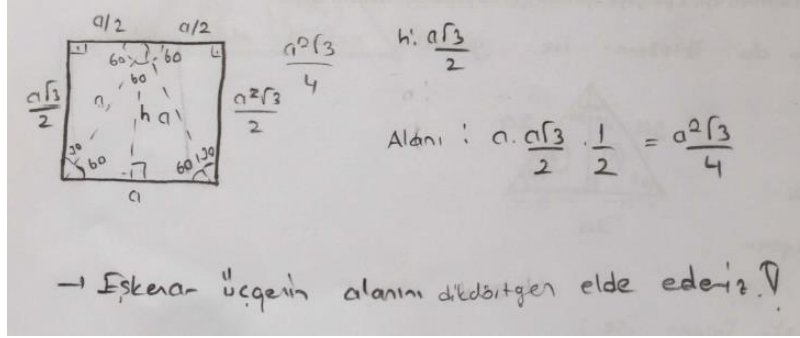 a/2 a/2
60 60
60
a√3/2
a h a
a²√3/2
30 60 60 30
a
a²√3/4
h: a√3/2
Alanı : a . a√3/2 . 1/2 = a²√3/4
→ Eşkenar üçgenin alanını dikdörtgen elde ederiz.